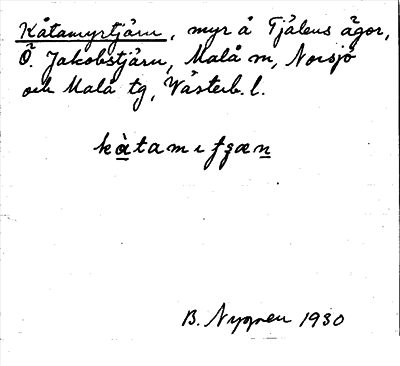 Kåtamyrtjärn, myr å Tjälens ägor,
Ö. Jakobstjärn, Malå sn, Norsjö
och Malå tg, Västerb. l.
B. Nygren 1930